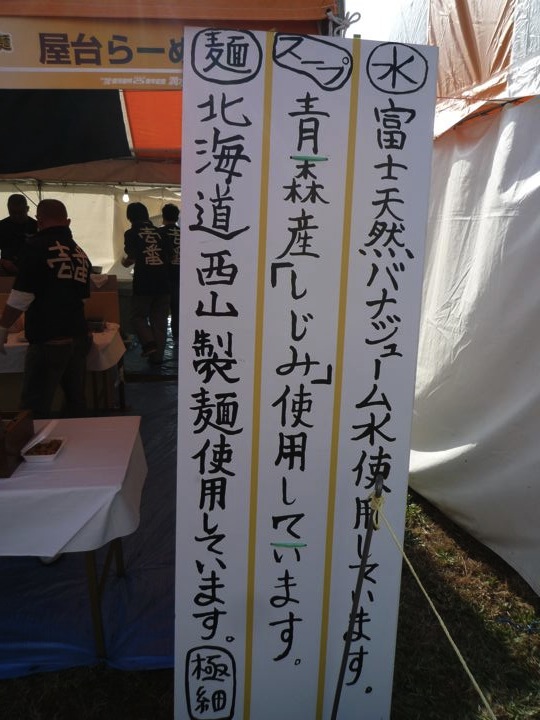 水 富士天然バナジューム水使用しています。
スープ 青森産「しじみ」使用しています。
麺 北海道西山製麺使用しています。 極細
屋台らーめ
壱番
壱番